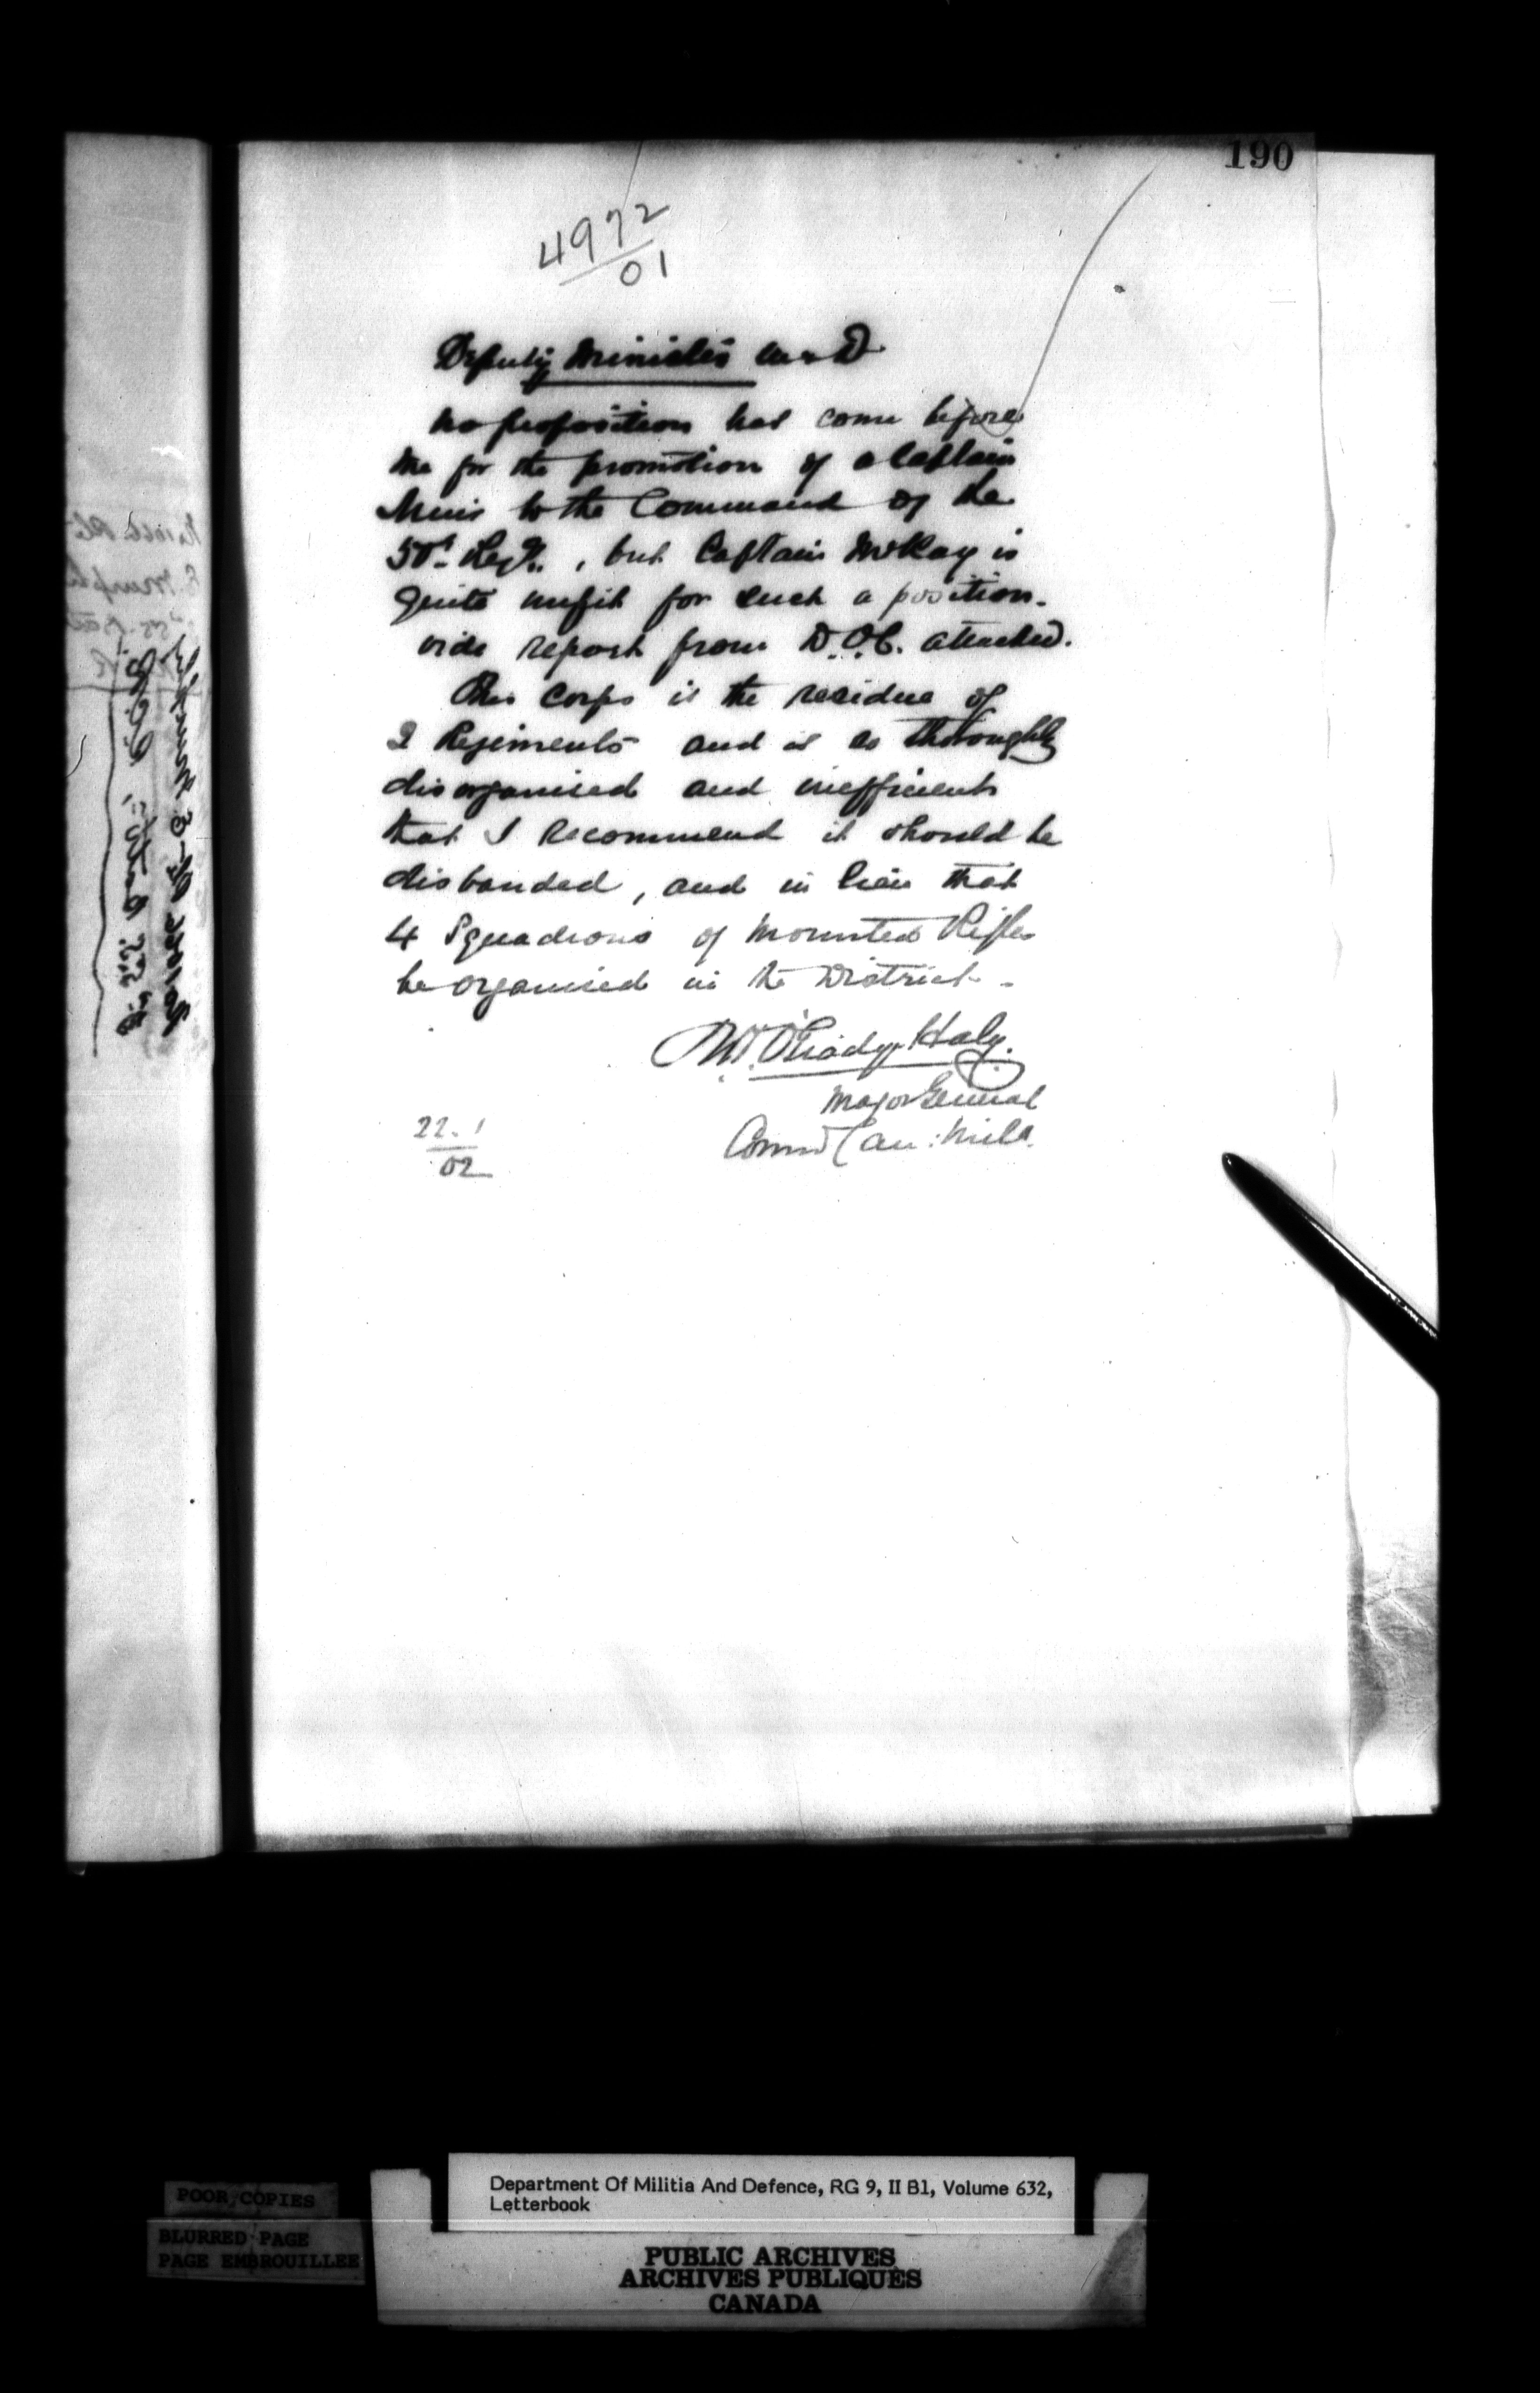 190
4972
01
Deputy Minister M & D
No proposition has come before
me for the promotion of a Captain
Muir to the Command of the
50th Regt., but Captain McKay is
quite unfit for such a position.
vide report from D.O.C. attached.
This Corps is the residue of
2 Regiments and is so thoroughly
disorganised and inefficient
that I recommend it should be
disbanded, and in lieu that
4 Squadrons of Mounted Rifles
be organised in the District.
O'Grady Haly.
Major General
Comd Can: Mila.
22.1
02
Department Of Militia And Defence, RG 9, II B1, Volume 632,
Letterbook
POOR COPIES
BLURRED PAGE
PAGE EMBROUILLEE
PUBLIC ARCHIVES
ARCHIVES PUBLIQUES
CANADA